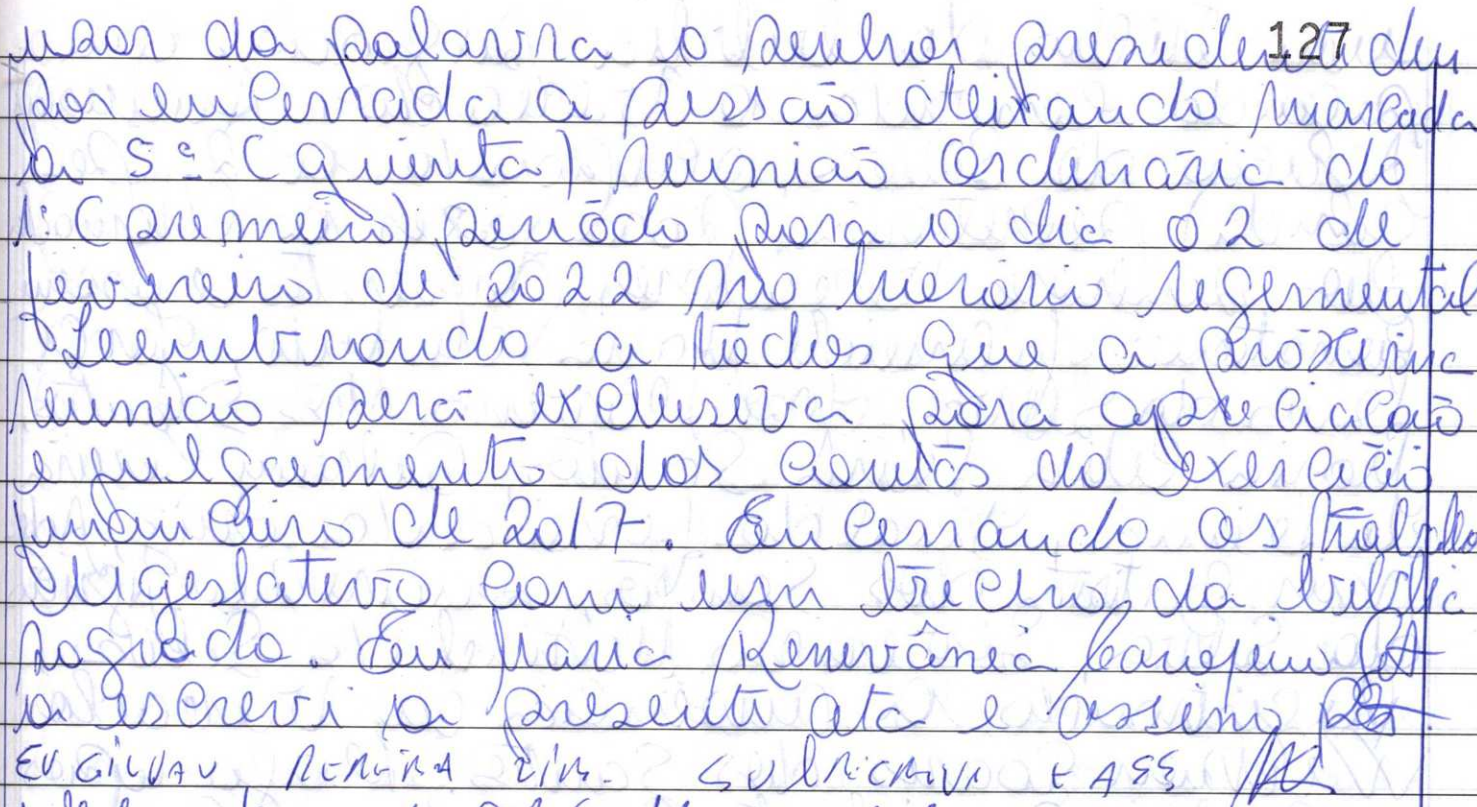 usar da palavra o senhor presidente deu 127
por encerrada a sessão deixando marcada
a 5ª (quinta) reunião Ordenária do
1º (premeiro) período para o dia 02 de
fevereiro de 2022 no horário regemental
Leembrando a todos que a próxema
reunião será exclusiva para apreciação
e julgamento das contas do exercício
financeiro de 2017. Encerrando os trabalho
legeslativo com um trecho da bíblia
sagrada. Eu Maria Renevânea
a escrevi a presente ata e assino
EU GILVAN PEREIRA SUBSCREVI E ASS